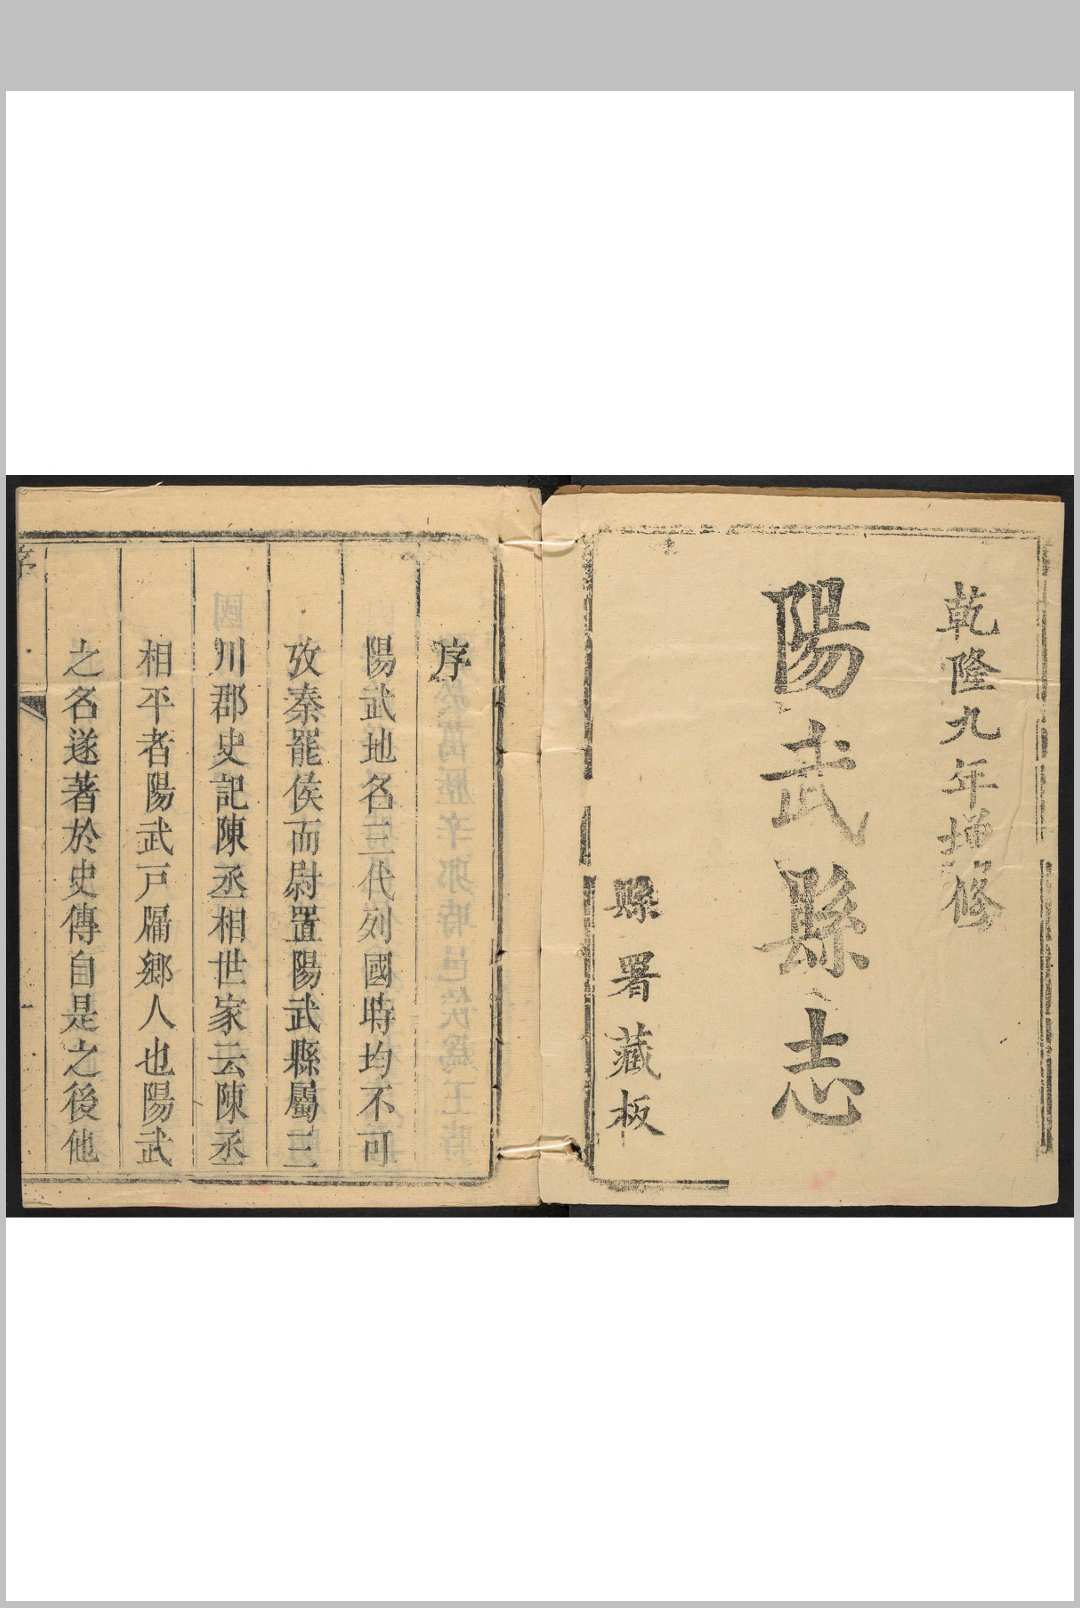 乾隆九年增修
陽武縣志
縣署藏板
序
陽武地名三代列國時均不可
攷秦罷侯而尉置陽武縣屬三
川郡史記陳丞相世家云陳丞
相平者陽武戸牖鄉人也陽武
之名遂著於史傳自是之後他
序